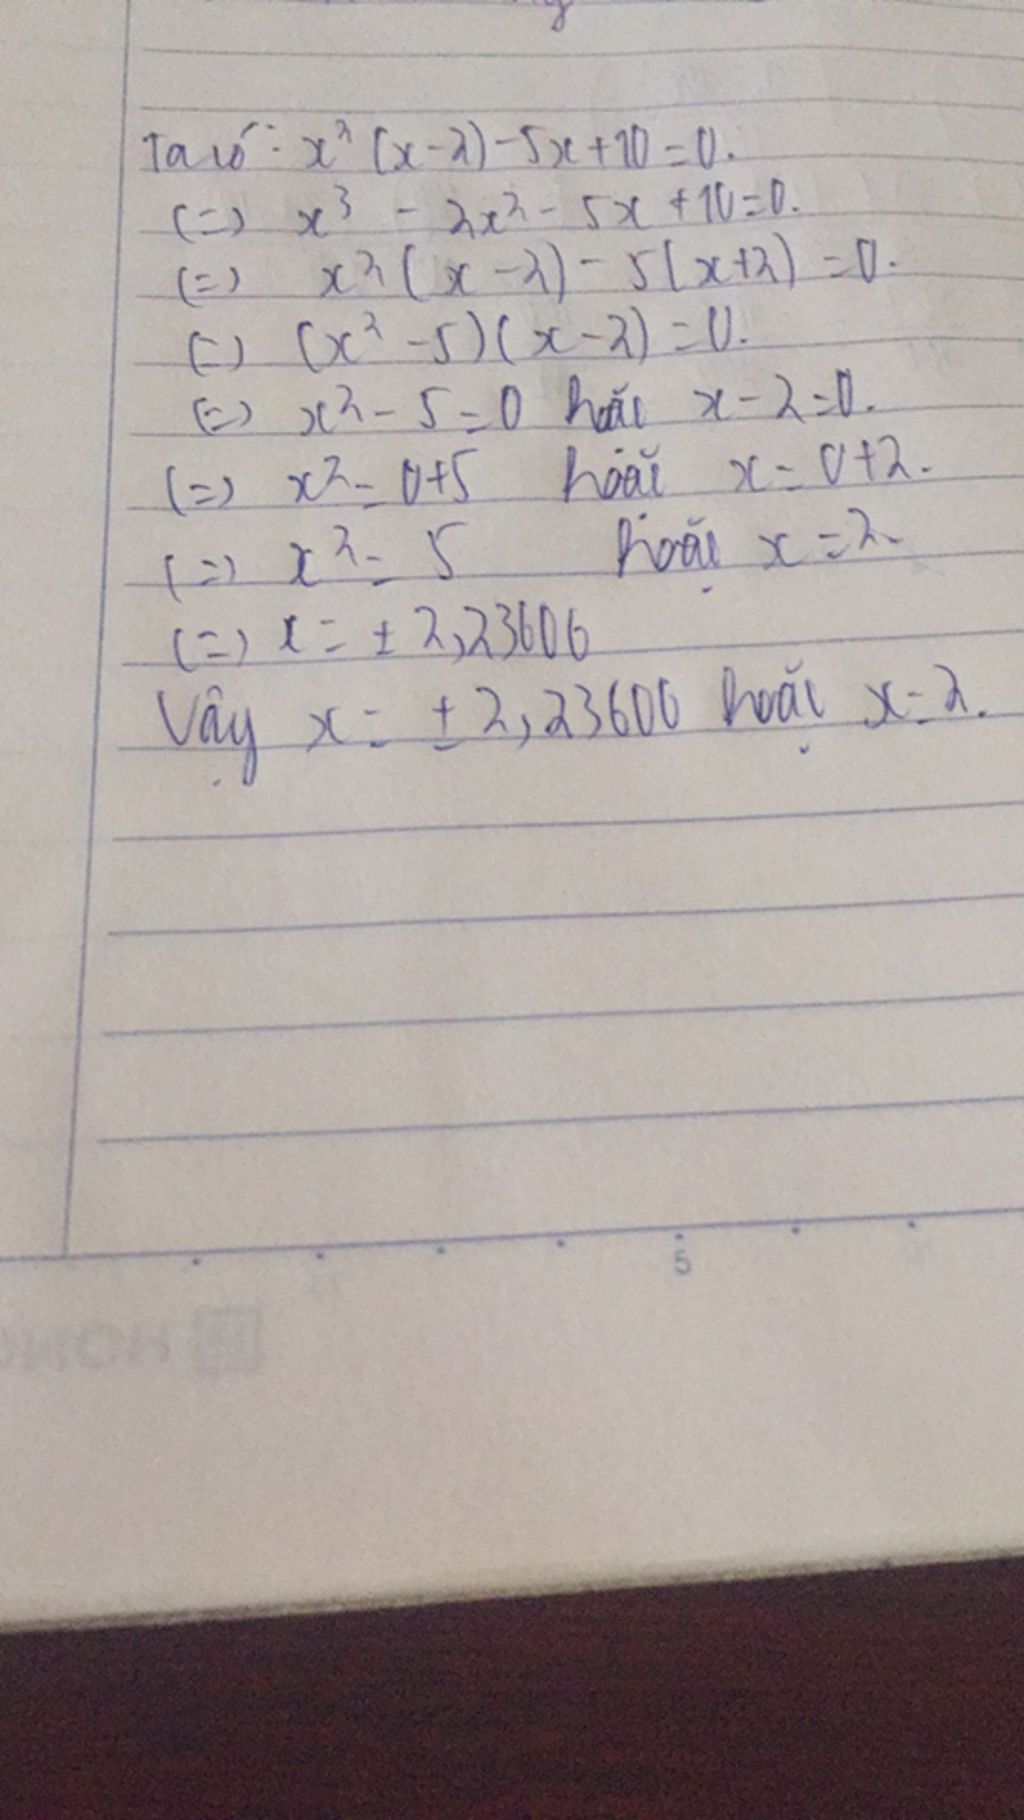 Ta có: x² (x-2)-5x+10=0.
(=) x³ - 2x² - 5x +10=0.
(=) x² ( x -2) - 5(x+2) =0.
(=) (x² -5)(x-2) =0.
(=) x² - 5 =0 hoặc x-2=0.
(=) x² = 0+5 hoặc x= 0+2.
(=) x² = 5 hoặc x =2.
(=) x= ± 2,23606
Vậy x= ± 2,23606 hoặc x=2.
5